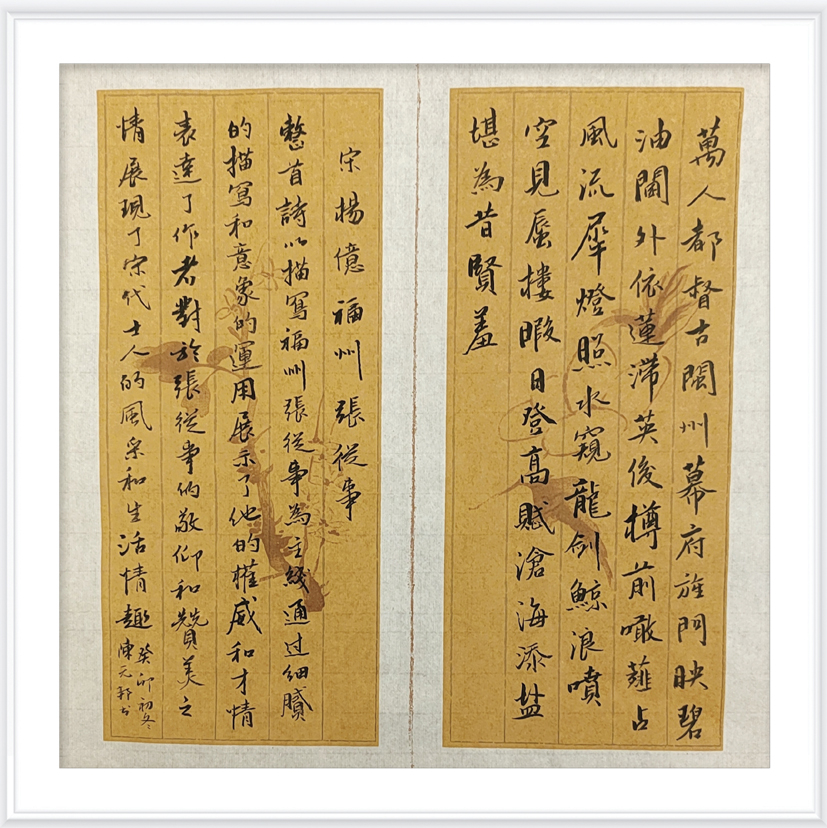 萬人都督古閩州幕府旌門映碧
油閫外依蓮滯英俊樽前噉薤占
風流犀燈照水窺龍劍鯨浪噴
空見蜃樓暇日登高賦滄海添鹽
堪為昔賢羞
宋楊億福州張從事
整首詩以描寫福州張從事為主綫通过細膩
的描寫和意象的運用展示了他的權威和才情
表達了作者對於張從事的敬仰和贊美之
情展現了宋代士人的風采和生活情趣
癸卯初冬
陳元龍书